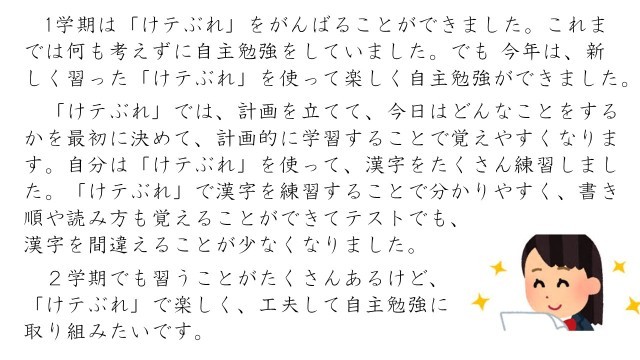 1学期は「けテぶれ」をがんばることができました。これま
では何も考えずに自主勉強をしていました。でも 今年は、新
しく習った「けテぶれ」を使って楽しく自主勉強ができました。
「けテぶれ」では、計画を立てて、今日はどんなことをする
かを最初に決めて、計画的に学習することで覚えやすくなりま
す。自分は「けテぶれ」を使って、漢字をたくさん練習しまし
た。「けテぶれ」で漢字を練習することで分かりやすく、書き
順や読み方も覚えることができてテストでも、
漢字を間違えることが少なくなりました。
２学期でも習うことがたくさんあるけど、
「けテぶれ」で楽しく、工夫して自主勉強に
取り組みたいです。